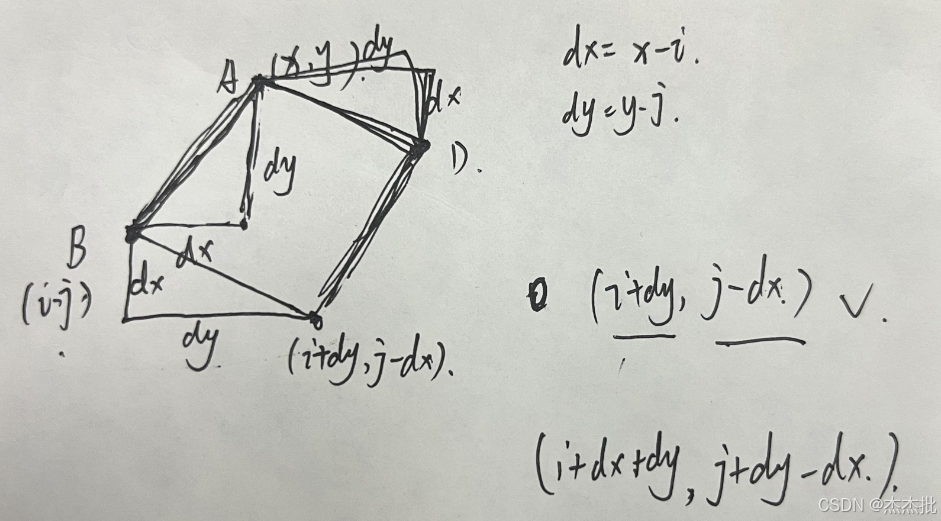 A (x,y) dy
dx
dx = x-i.
dy = y-j.
D.
dy
B
dx
(i,j)
dx
dy
(i+dy, j-dx).
(i+dy, j-dx.) √.
(i+dx+dy, j+dy-dx.).
CSDN @杰杰批